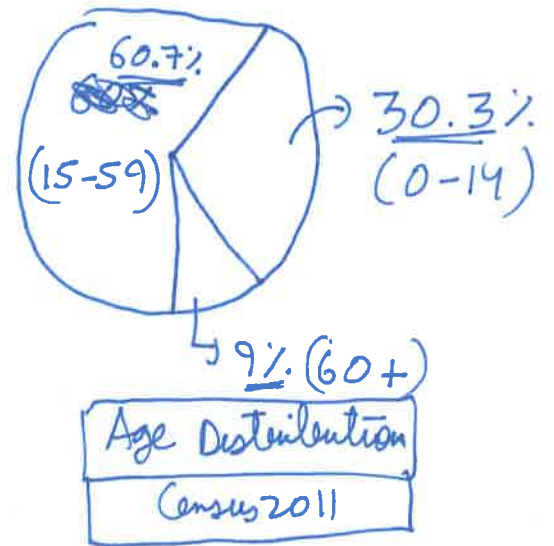 60.7%
(15-59)
30.3%
(0-14)
9% (60+)
Age Distribution
Census 2011